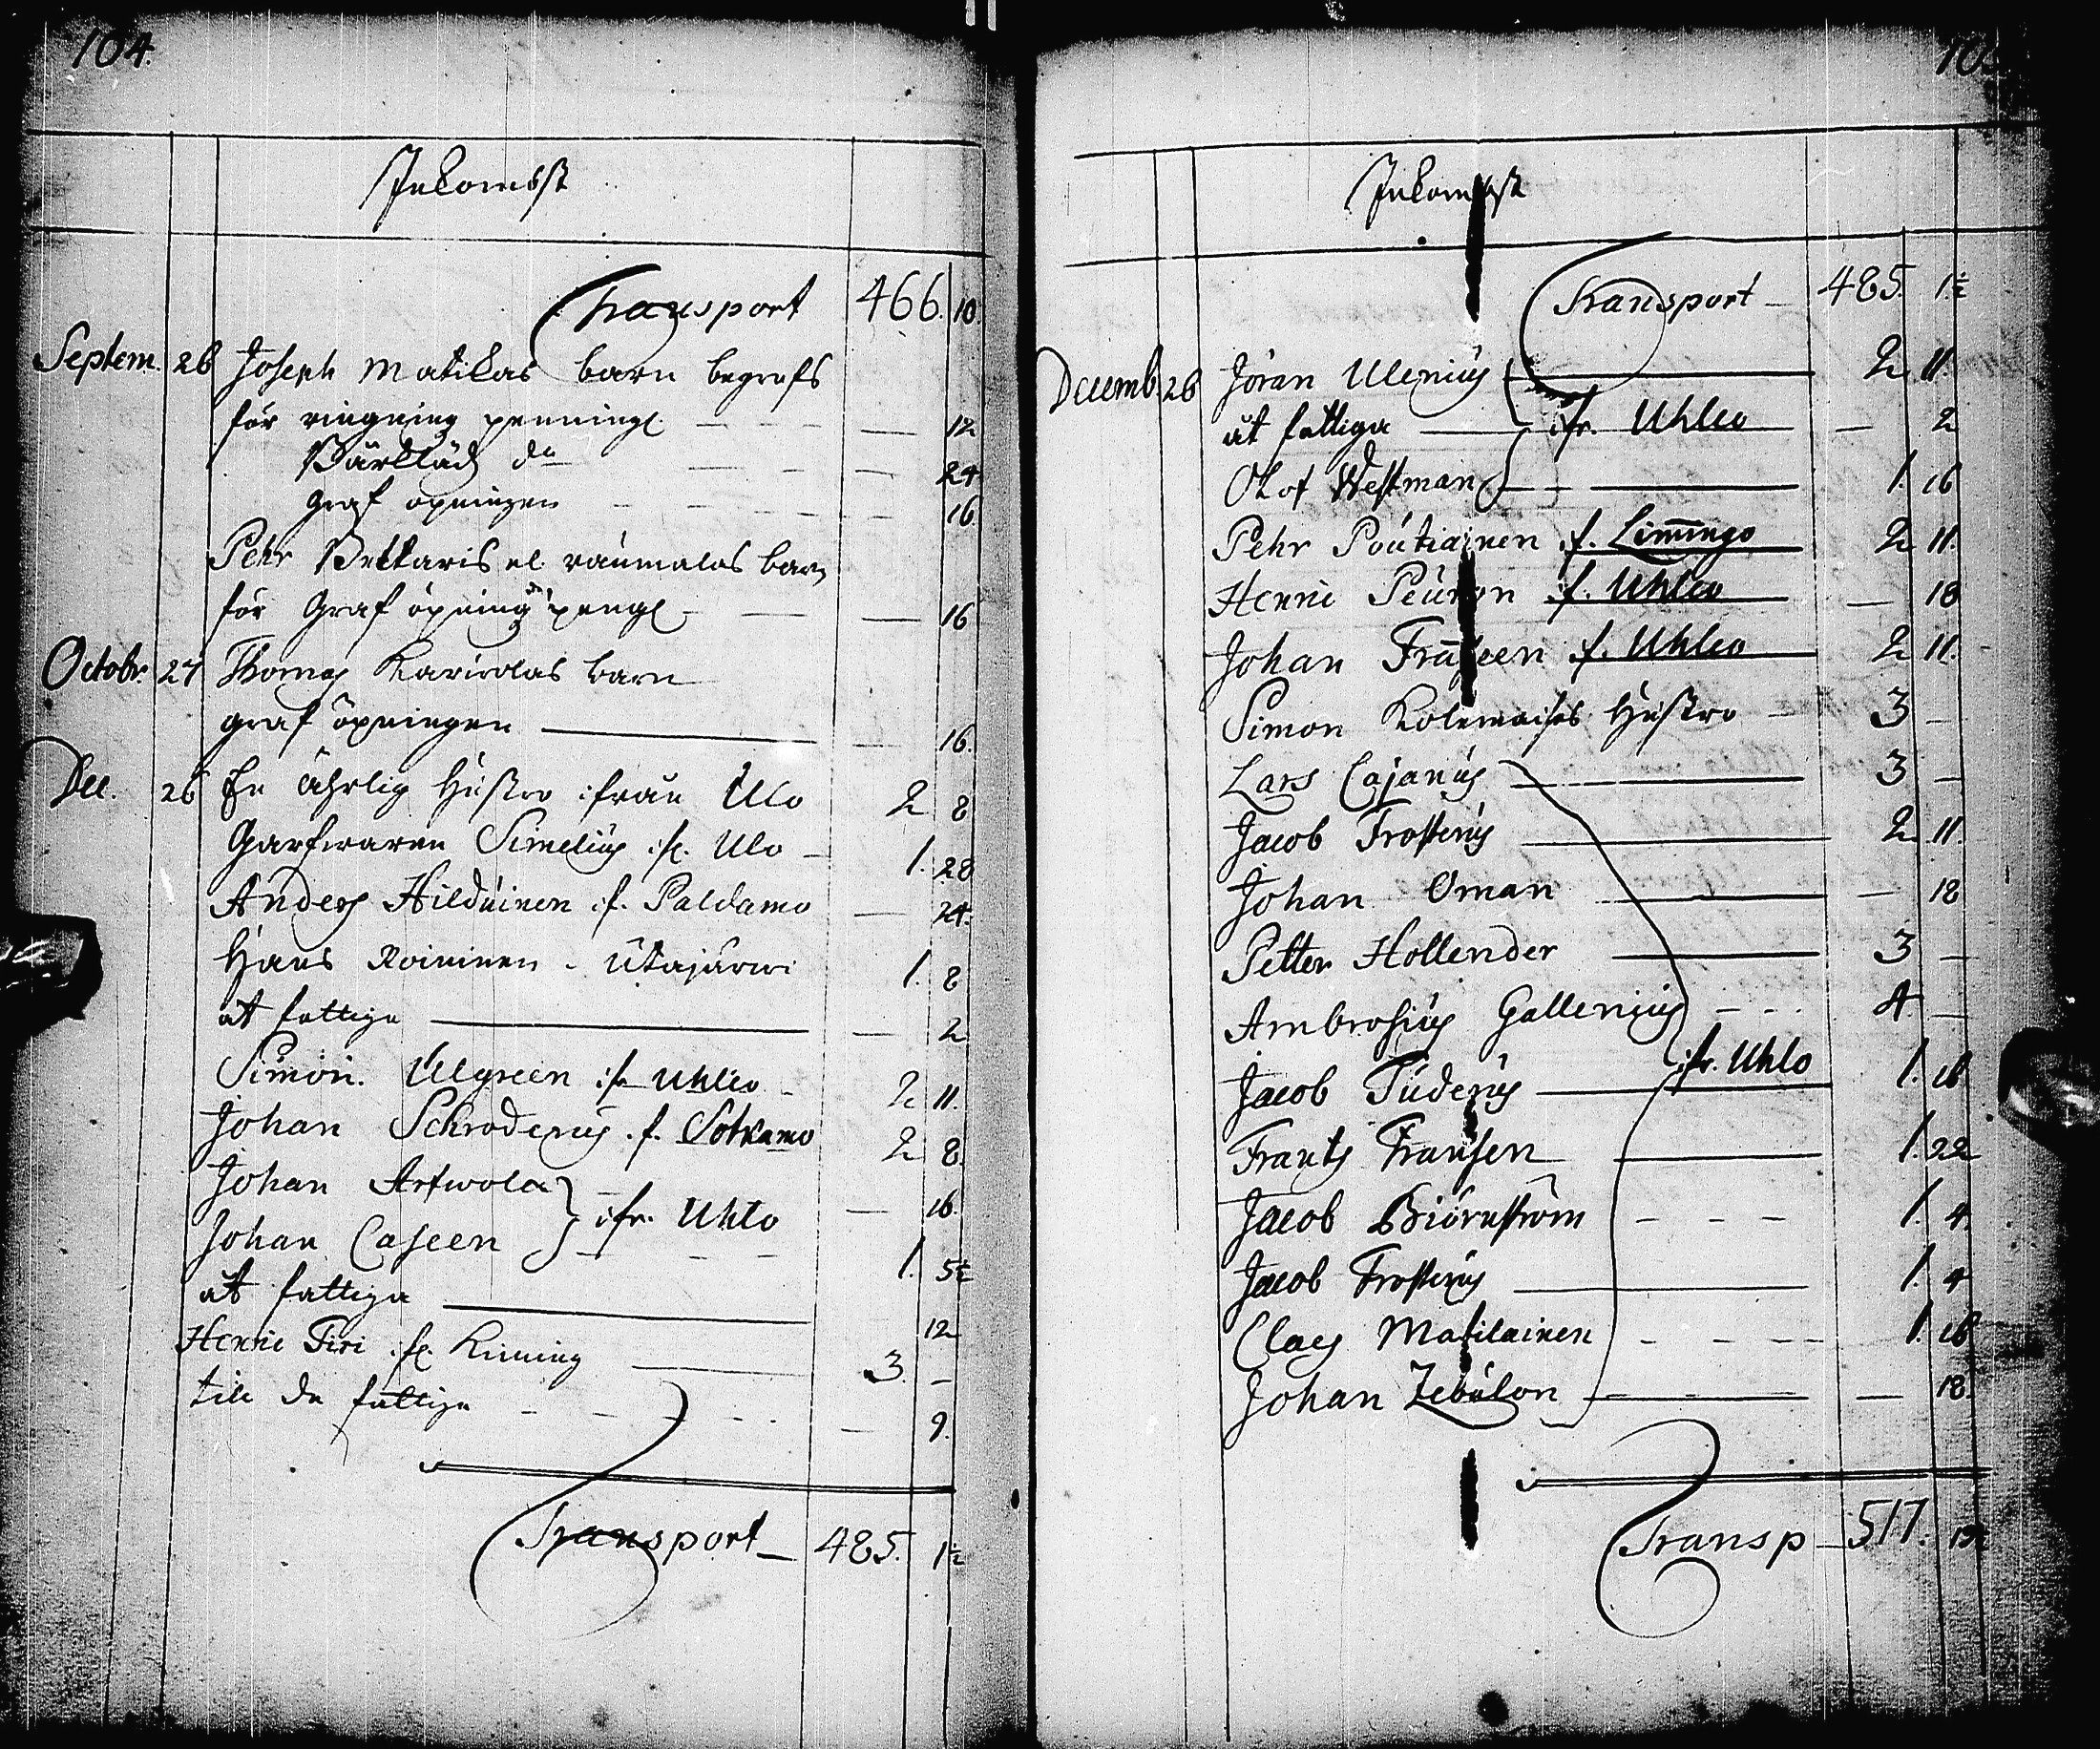 104.
Inkombst
Transport 466. 10.
Septem. 26 Joseph Matilas barn begrafs
för ringning penning 12
Bårkläd do 24
graf öpningen 16
Pehr Pettaris el. raumalas barn
för Graf öpning peng 16
Octobr. 27 Thomas Karivolas barn
graf öpningen 16.
Dec. 26 En ährlig Hustro ifrån Ulo 2 8
Garfwaren Simelius .fr. Ulo 1. 28
Anders Hilduinen .f. Paldamo 24.
Hans Roininen Utajärwi 1. 8
at fattiga 2
Simon. Ulgreen ifr Uhleo 2 11.
Johan Schroderus .f. Sotkamo 2 8.
Johan Artwola 16.
ifr. Uhlo
Johan Caseen 1. 5½
at fattiga 12
Henric Piri .fr. Kiming 3 -
till de fattiga 9.
Transport 485. 1½
Inkombst
Transport 485. 1½
Decemb. 26 Jöran Ulenius 2 11
åt fattiga ifr. Uhleo 2
Olof Westman 1. 16
Pehr Poutiainen .f. Limingo 2 11.
Henric Peuron .f. Uhleo 18
Johan Fraseen .f. Uhleo 2 11.
Simon Kolemaises Hustro 3 -
Lars Cajanus 3 -
Jacob Frosterus 2 11.
Johan Oman 18
Petter Hollender 3 -
Ambrosius Gallenius 4 -
ifr. Uhlo
Jacob Tuderus 1. 16
Frants Fransen 1. 22
Jacob Biörnström 1. 4
Jacob Frosterus 1. 4
Claes Matilainen 1. 16
Johan Zebulon 18.
Transp 517.